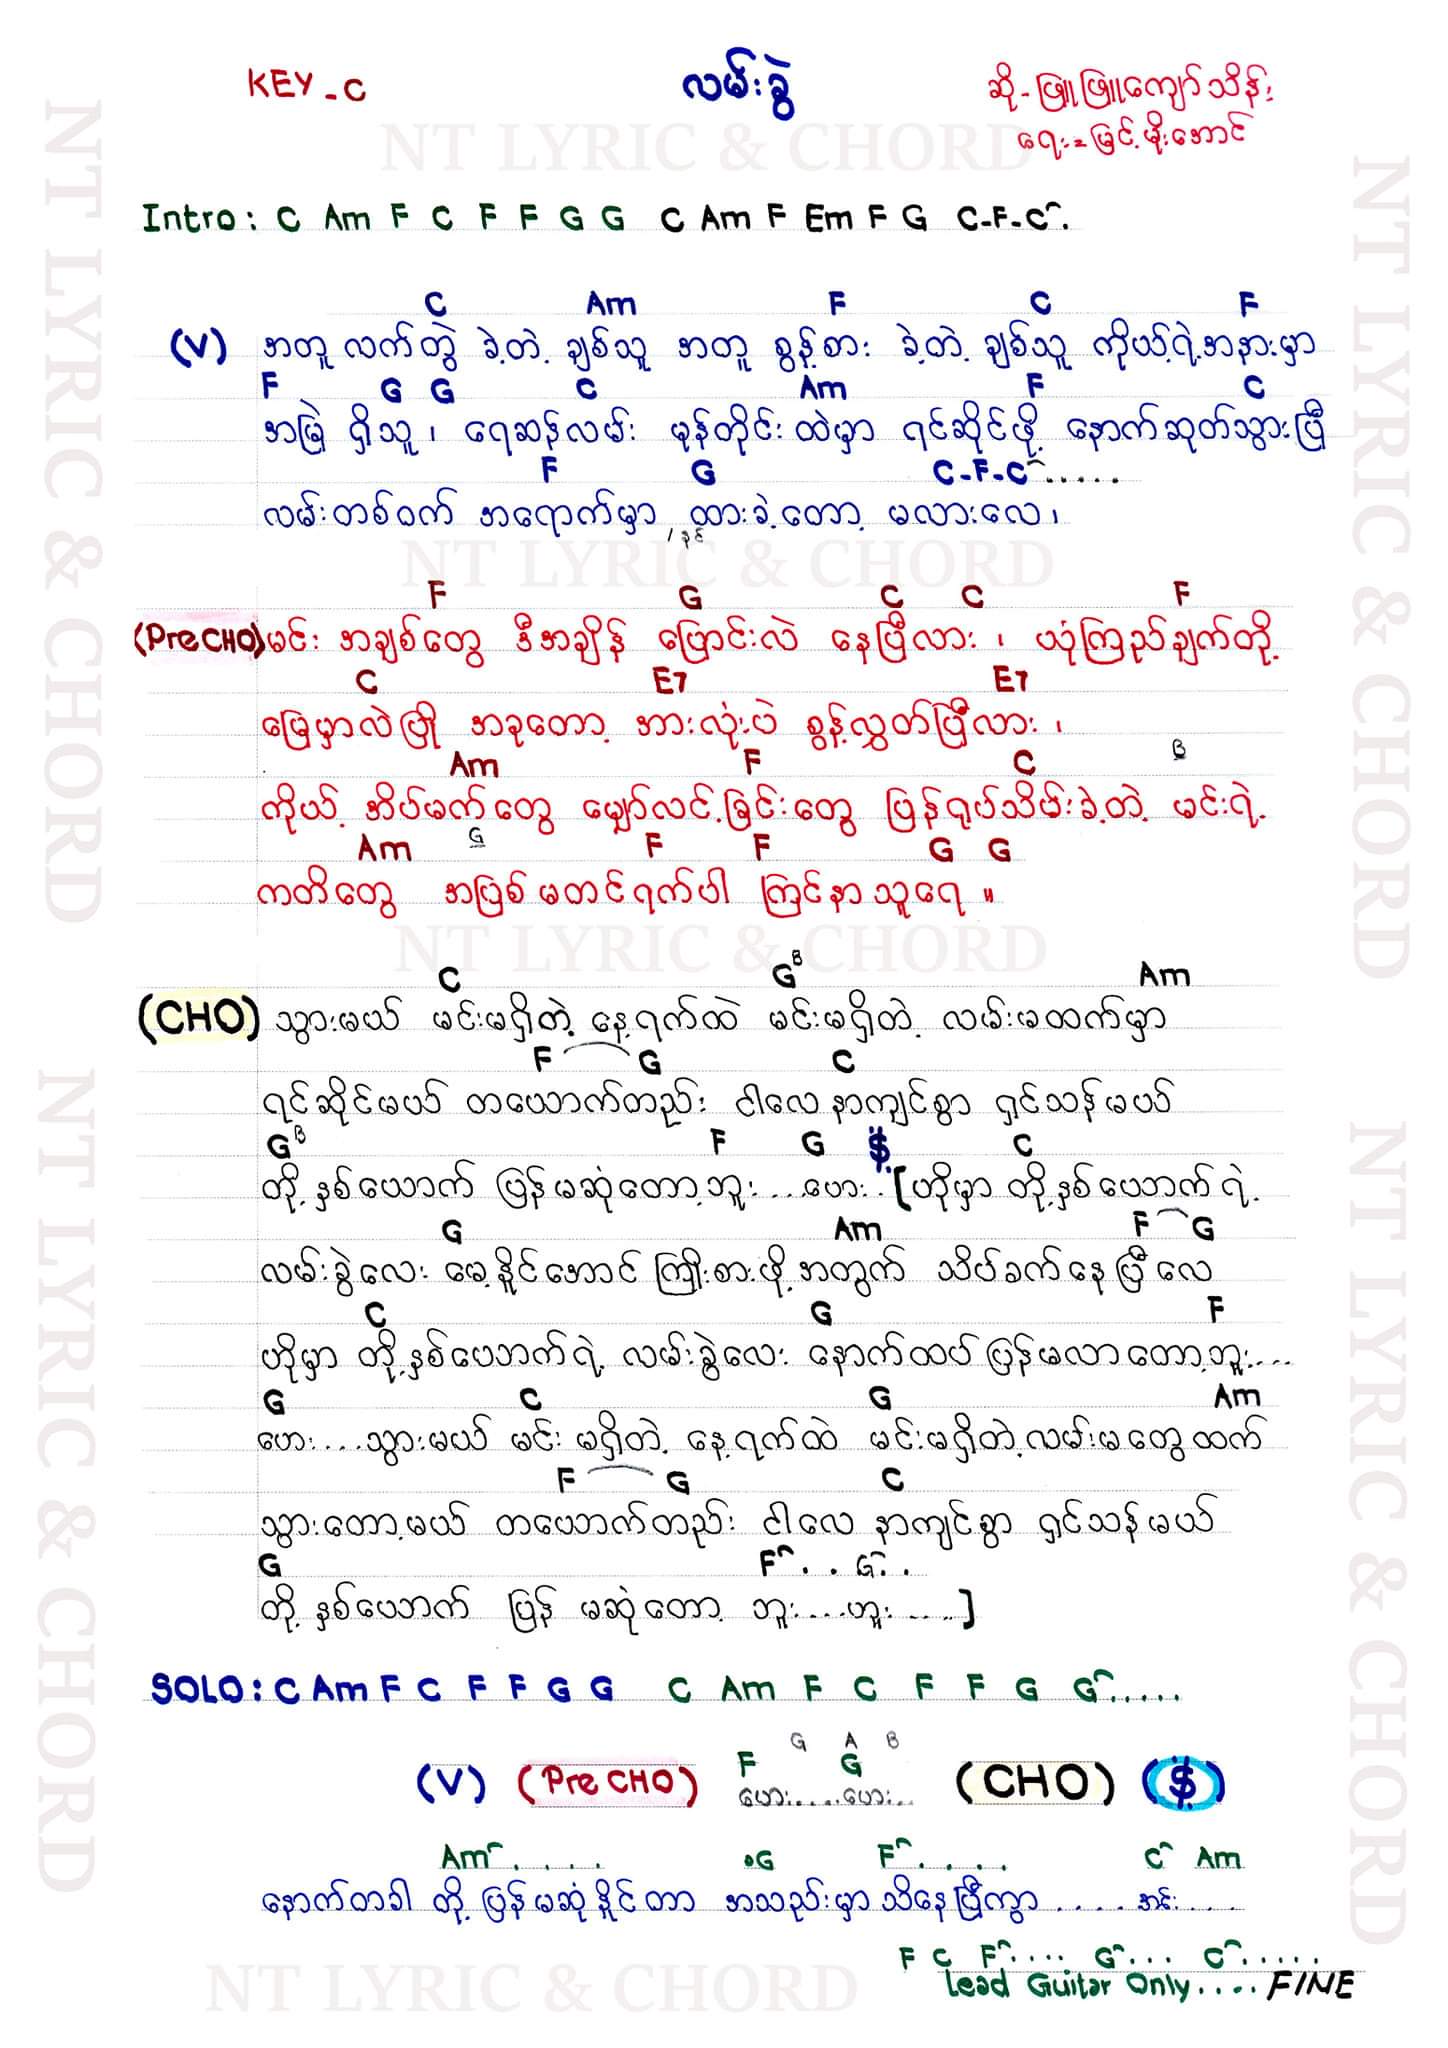 KEY - C
လမ်းခွဲ
ဆို - ဖြူဖြူကျော်သိန်း
ရေး = မြင့်မိုးအောင်
NT LYRIC & CHORD
Intro : C Am F C F F G G C Am F Em F G C-F-C⌒.
C Am F C F
(V) အတူ လက်တွဲ ခဲ့တဲ့ ချစ်သူ အတူ စွန့်စား ခဲ့တဲ့ ချစ်သူ ကိုယ့်ရဲ့အနားမှာ
F G G C Am F C
အမြဲ ရှိသူ ၊ ရေဆန်လမ်း မုန်တိုင်းထဲမှာ ရင်ဆိုင်ဖို့ နောက်ဆုတ်သွားပြီ
F G C-F-C⌒.....
လမ်းတစ်ဝက် အရောက်မှာ ထားခဲ့တော့ မလားလေ ၊
/ နင်
NT LYRIC & CHORD
F G C C F
(Pre CHO) မင်း အချစ်တွေ ဒီအချိန် ပြောင်းလဲ နေပြီလား ၊ ယုံကြည်ချက်တို့
C E7 E7
မြေမှာလဲပြို အခုတော့ အားလုံးပဲ စွန့်လွှတ်ပြီလား ၊
Am F C B
ကိုယ့် အိပ်မက်တွေ မျှော်လင့်ခြင်းတွေ ပြန်ရုပ်သိမ်းခဲ့တဲ့ မင်းရဲ့
Am G F F G G
ကတိတွေ အပြစ်မတင်ရက်ပါ ကြင်နာသူရေ ။
NT LYRIC & CHORD
C G B Am
(CHO) သွားမယ် မင်းမရှိတဲ့ နေ့ရက်ထဲ မင်းမရှိတဲ့ လမ်းမထက်မှာ
F G C
ရင်ဆိုင်မယ် တယောက်တည်း ငါလေ နာကျင်စွာ ရှင်သန်မယ်
G B F G $ C
တို့နှစ်ယောက် ပြန်မဆုံတော့ဘူး....ဟေး.. [ ဟိုမှာ တို့နှစ်ယောက်ရဲ့
G Am F G
လမ်းခွဲလေး မေ့နိုင်အောင် ကြိုးစားဖို့အတွက် သိပ်ခက်နေပြီလေ
C G F
ဟိုမှာ တို့နှစ်ယောက်ရဲ့ လမ်းခွဲလေး နောက်ထပ်ပြန်မလာတော့ဘူး....
G C G Am
ဟေး....သွားမယ် မင်း မရှိတဲ့ နေ့ရက်ထဲ မင်းမရှိတဲ့လမ်းမတွေထက်
F G C
သွားတော့မယ် တယောက်တည်း ငါလေ နာကျင်စွာ ရှင်သန်မယ်
G F⌒.. G⌒..
တို့ နှစ်ယောက် ပြန် မဆုံတော့ ဘူး....ဟူး.....]
SOLO : C Am F C F F G G C Am F C F F G G⌒.....
G A B
F G
(V) (Pre CHO) ဟေး.....ဟေး... (CHO) ($)
Am⌒.... •G F⌒..... C⌒ Am
နောက်တခါ တို့ပြန်မဆုံနိုင်တာ အသည်းမှာသိနေပြီကွာ ..... အင်း....
F C F⌒.... G⌒... C⌒.....
Lead Guitar Only.... FINE
NT LYRIC & CHORD
NT LYRIC & CHORD
NT LYRIC & CHORD
NT LYRIC & CHORD
NT LYRIC & CHORD